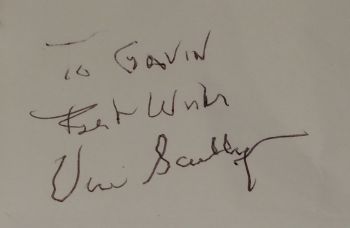 To GAVIN
Best Wishes
Vin Scully